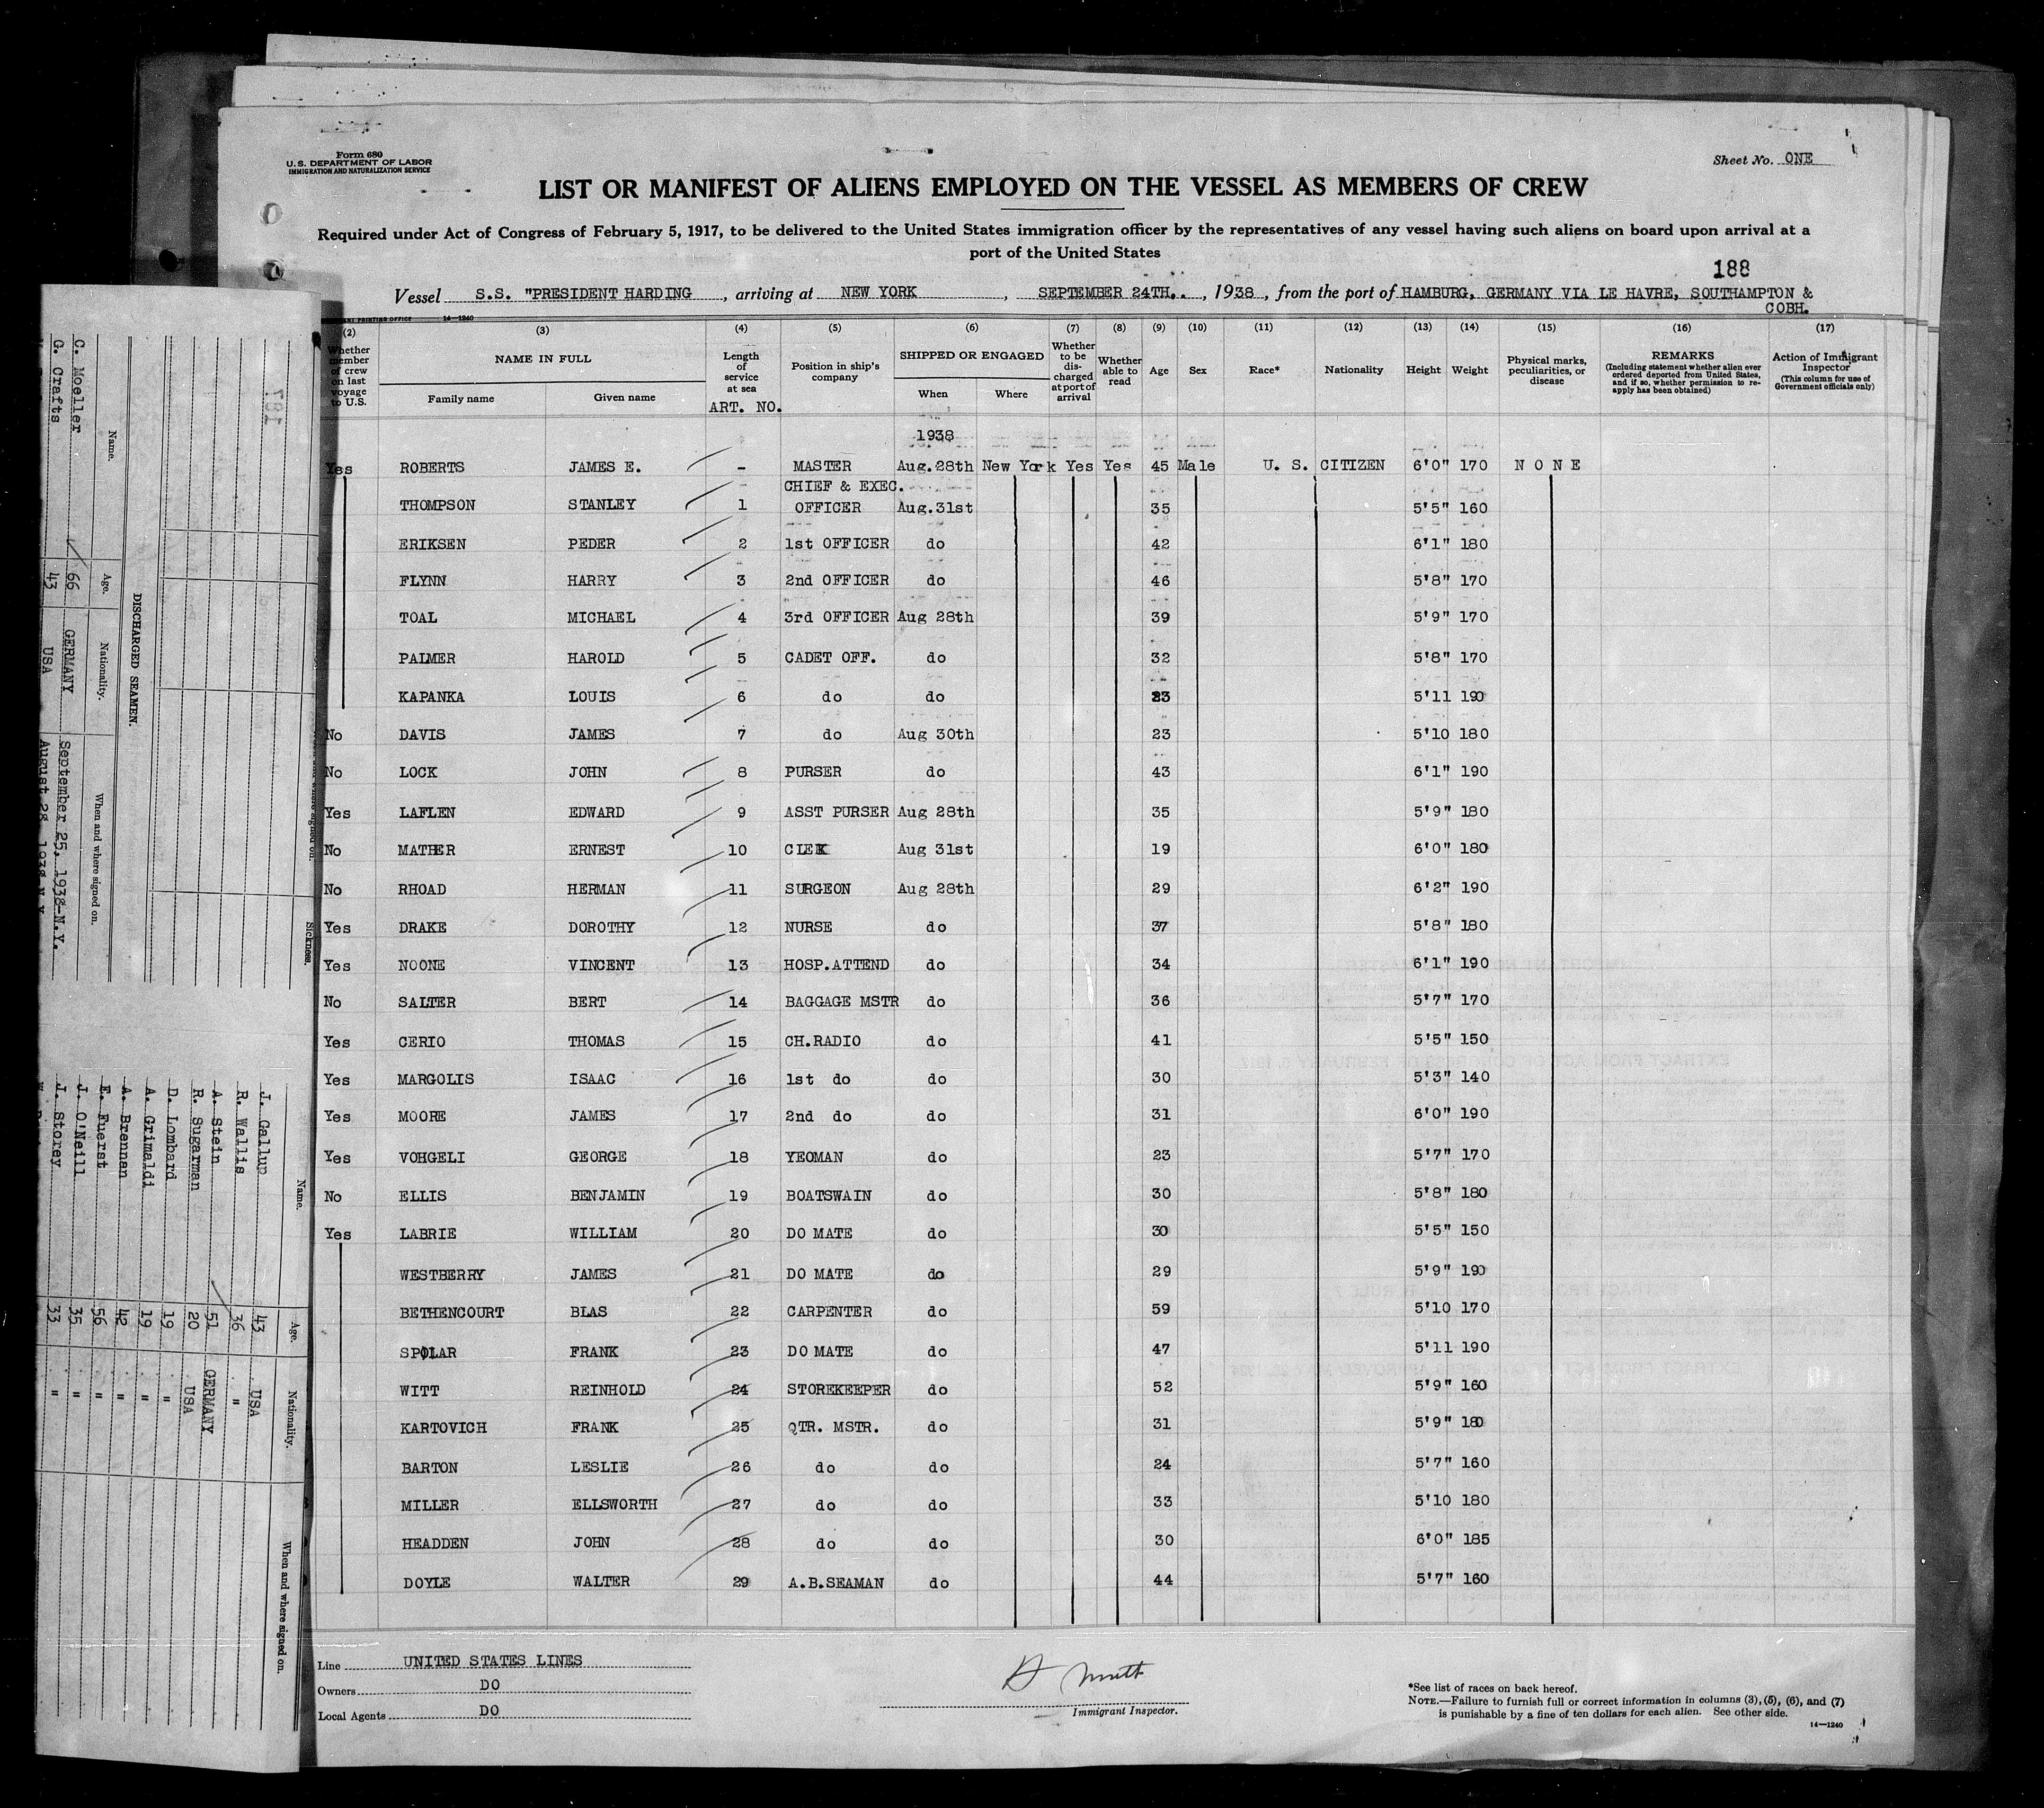 Form 680
U.S. DEPARTMENT OF LABOR
IMMIGRATION AND NATURALIZATION SERVICE
Sheet No. ONE
LIST OR MANIFEST OF ALIENS EMPLOYED ON THE VESSEL AS MEMBERS OF CREW
Required under Act of Congress of February 5, 1917, to be delivered to the United States immigration officer by the representatives of any vessel having such aliens on board upon arrival at a
port of the United States
188
Vessel S.S. "PRESIDENT HARDING, arriving at NEW YORK, SEPTEMBER 24TH., 1938, from the port of HAMBURG, GERMANY VIA LE HAVRE, SOUTHAMPTON &
COBH.
PRINTING OFFICE 14—1240
(2) (3) (4) (5) (6) (7) (8) (9) (10) (11) (12) (13) (14) (15) (16) (17)
Whether member of crew on last voyage to U.S.
NAME IN FULL
Family name Given name
Length of service at sea
ART. NO.
Position in ship's company
SHIPPED OR ENGAGED
When Where
Whether to be discharged at port of arrival
Whether able to read
Age Sex Race* Nationality Height Weight
Physical marks, peculiarities, or disease
REMARKS
(Including statement whether alien ever ordered deported from United States, and if so, whether permission to reapply has been obtained)
Action of Immigrant Inspector
(This column for use of Government officials only)
1938
Yes ROBERTS JAMES E. - MASTER Aug.28th New York Yes Yes 45 Male U. S. CITIZEN 6'0" 170 N O N E
THOMPSON STANLEY 1 CHIEF & EXEC. OFFICER Aug.31st 35 5'5" 160
ERIKSEN PEDER 2 1st OFFICER do 42 6'1" 180
FLYNN HARRY 3 2nd OFFICER do 46 5'8" 170
TOAL MICHAEL 4 3rd OFFICER Aug 28th 39 5'9" 170
PALMER HAROLD 5 CADET OFF. do 32 5'8" 170
KAPANKA LOUIS 6 do do 23 5'11 190
No DAVIS JAMES 7 do Aug 30th 23 5'10 180
No LOCK JOHN 8 PURSER do 43 6'1" 190
Yes LAFLEN EDWARD 9 ASST PURSER Aug 28th 35 5'9" 180
No MATHER ERNEST 10 Aug 31st 19 6'0" 180
No RHOAD HERMAN 11 SURGEON Aug 28th 29 6'2" 190
Yes DRAKE DOROTHY 12 NURSE do 37 5'8" 180
Yes NOONE VINCENT 13 HOSP.ATTEND do 34 6'1" 190
No SALTER BERT 14 BAGGAGE MSTR do 36 5'7" 170
Yes CERIO THOMAS 15 CH.RADIO do 41 5'5" 150
Yes MARGOLIS ISAAC 16 1st do do 30 5'3" 140
Yes MOORE JAMES 17 2nd do do 31 6'0" 190
Yes VOHGELI GEORGE 18 YEOMAN do 23 5'7" 170
No ELLIS BENJAMIN 19 BOATSWAIN do 30 5'8" 180
Yes LABRIE WILLIAM 20 DO MATE do 30 5'5" 150
WESTBERRY JAMES 21 DO MATE do 29 5'9" 190
BETHENCOURT BLAS 22 CARPENTER do 59 5'10 170
SPOLAR FRANK 23 DO MATE do 47 5'11 190
WITT REINHOLD 24 STOREKEEPER do 52 5'9" 160
KARTOVICH FRANK 25 QTR. MSTR. do 31 5'9" 180
BARTON LESLIE 26 do do 24 5'7" 160
MILLER ELLSWORTH 27 do do 33 5'10 180
HEADDEN JOHN 28 do do 30 6'0" 185
DOYLE WALTER 29 A.B.SEAMAN do 44 5'7" 160
Line UNITED STATES LINES
Owners DO
Local Agents DO
Immigrant Inspector.
*See list of races on back hereof.
NOTE.—Failure to furnish full or correct information in columns (3), (5), (6), and (7)
is punishable by a fine of ten dollars for each alien. See other side.
14—1240
187
Sickness.
DISCHARGED SEAMEN.
Name. Age. Nationality. When and where signed on.
C. Moeller 66 GERMANY September 25, 1938-N.Y.
G. Crafts 43 USA August 28 1938 N.Y.
Name. Age. Nationality. When and where signed on.
J. Gallup 43 USA
R. Wallis 36 "
A. Stein 51 GERMANY
R. Sugarman 20 USA
D. Lombard 19 "
A. Grimaldi 19 "
A. Brennan 42 "
E. Fuerst 56 "
J. O'Neill 35 "
J. Storey 33 "